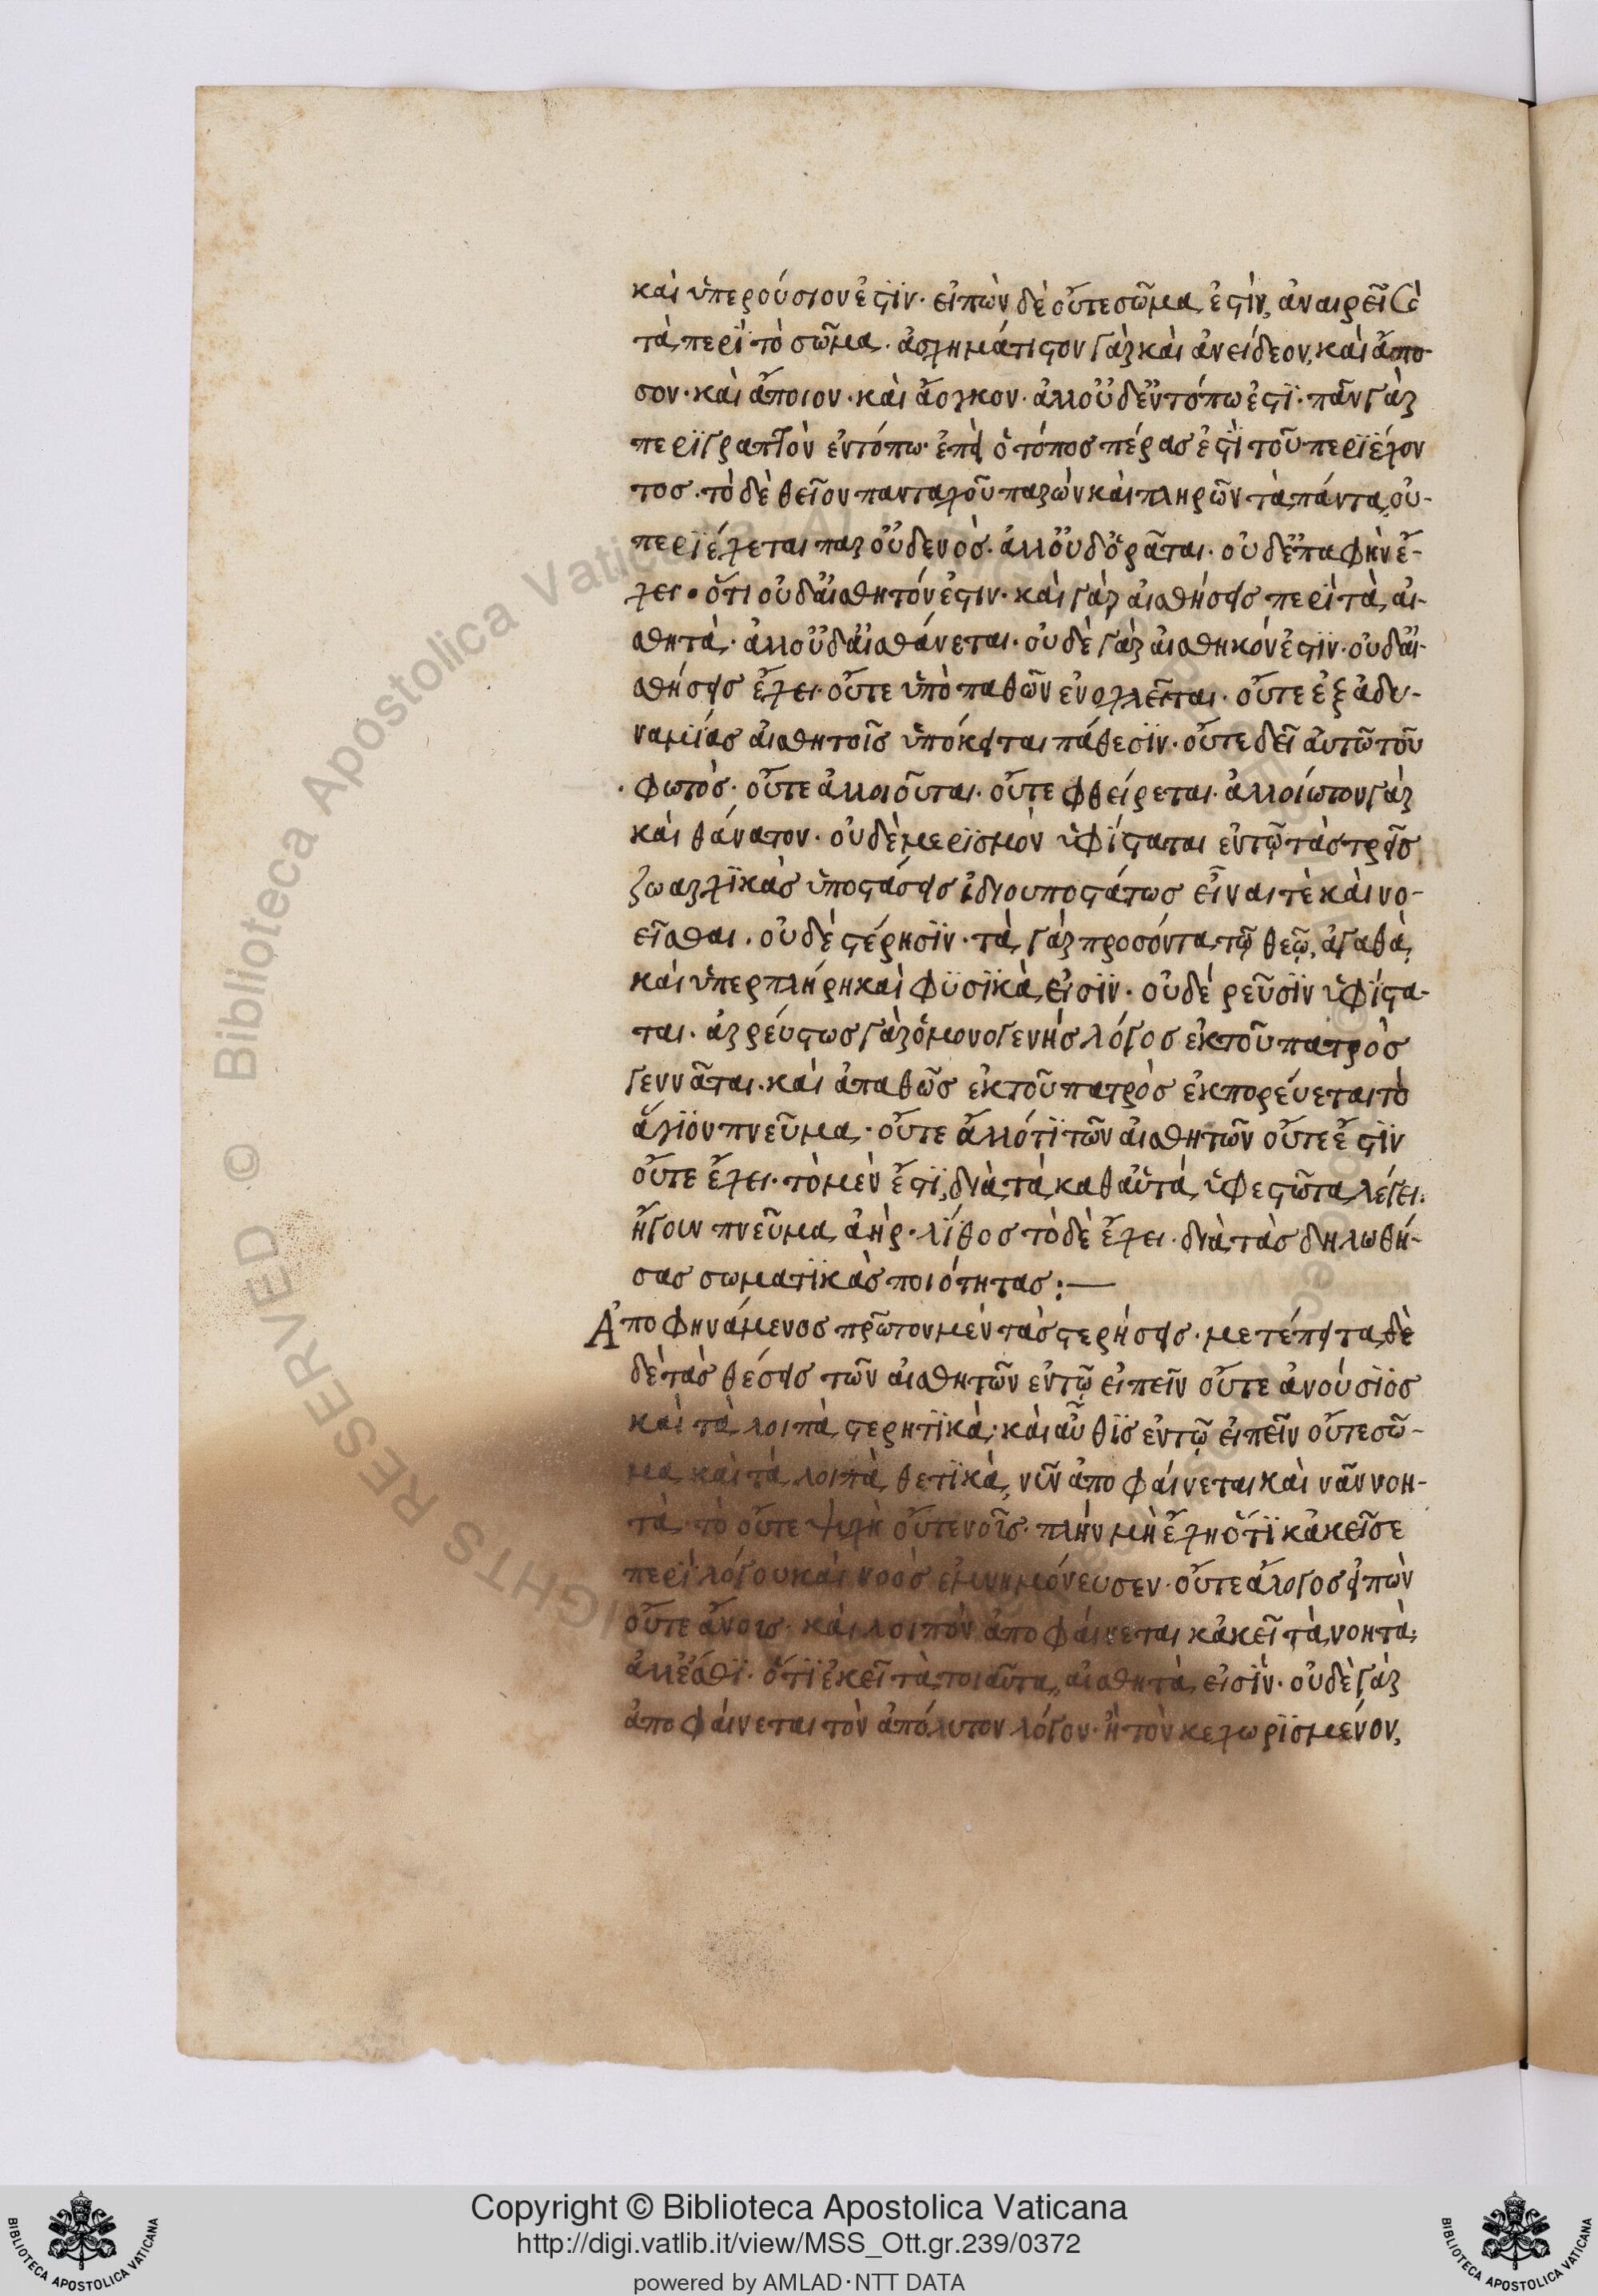 καὶ ὑπερούσιον ἐστὶν· εἰπὼν δὲ οὔτε σῶμα ἐστίν, ἀναιρεῖ καὶ
τὰ περὶ τὸ σῶμα· ἀσχημάτιστον γὰρ καὶ ἀνείδεον, καὶ ἄπο
σον· καὶ ἄποιον· καὶ ἄογκον· ἀλλ' οὐδ' ἐν τόπω ἐστὶ· πᾶν γὰρ
περιγραπτὸν ἐν τόπω· ἐπεὶ ὁ τόπος πέρας ἐστὶ τοῦ περιέχον
τος· τὸ δὲ θεῖον πανταχοῦ παρὼν καὶ πληρῶν τὰ πάντα, οὐ-
περιέχεται παρ οὐδενὸς· ἀλλ' οὐδ' ὁρᾶται· οὐδ' ἐπαφὴν ἔ-
χει· ὅτι οὐδ' αἰσθητόν ἐστιν· καὶ γὰρ αἰσθήσεις περὶ τὰ αἰ-
σθητὰ· ἀλλ' οὐδ' αἰσθάνεται· οὐδὲ γὰρ αἰσθηκόν ἐστὶν· οὐδ' αἰ-
σθήσεις ἔχει· οὔτε ὑπὸ παθῶν ἐνοχλεῖται· οὔτε ἐξ ἀδυ-
ναμίας αἰσθητοῖς ὑπόκειται πάθεσιν· οὔτε δεῖ αὐτῶ τοῦ
φωτὸς· οὔτε ἀλλοιοῦται· οὔτε φθείρεται· ἀλλοίωτον γὰρ
καὶ θάνατον· οὐδὲ μερισμὸν ὑφίσταται ἐν τῷ τὰς τρεῖς
ζωαρχικὰς ὑποστάσεις ἰδιουποστάτως εἶναι τὲ καὶ νο-
εῖσθαι· οὐδὲ στέρησιν· τὰ γὰρ προσόντα τῷ θεῷ, ἀγαθὰ,
καὶ ὑπερπλήρη καὶ φυσικὰ εἰσὶν· οὐδὲ ρεῦσιν ὑφίστα-
ται· ἀρρεύστως γὰρ ὁ μονογενὴς λόγος ἐκ τοῦ πατρὸς
γεννᾶται· καὶ ἀπαθῶς ἐκ τοῦ πατρὸς ἐκπορεύεται τὸ
ἅγιον πνεῦμα· οὔτε ἄλλό τι τῶν αἰσθητῶν οὔτε ἔστιν
οὔτε ἔχει· τὸ μὲν ἔστι, διὰ τὰ καθ αὑτὰ ὑφεστῶτα λέγει·
ἤγουν πνεῦμα ἀὴρ· λίθος τὸ δὲ ἔχει· διὰ τὰς δηλωθή-
σας σωματικὰς ποιότητας:—
Ἀποφηνάμενος πρῶτον μὲν τὰς στερήσεις· μετέπειτα δὲ
δὲ τὰς θέσεις τῶν αἰσθητῶν ἐν τῷ εἰπεῖν οὔτε ἀνούσιος
καὶ τὰ λοιπὰ στερητικὰ· καὶ αὖθις ἐν τῷ εἰπεῖν οὔτε σῶ-
μα καὶ τὰ λοιπὰ θετικὰ, νῦν ἀποφαίνεται καὶ νᾶν νοη-
τὰ· τὸ οὔτε ψυχὴ οὔτε νοῦς· πλὴν μὴ ἔχη ὅτι κἀκεῖσε
περὶ λόγου καὶ νοὸς ἐμνημόνευσεν· οὔτε ἄλογος εἰπὼν
οὔτε ἄνους· καὶ λοιπὸν ἀποφαίνεται κἀκεῖ τὰ νοητὰ·
ἀλλ' ἔσθι· ὅτι ἐκεῖ τὰ τοιαῦτα, αἰσθητὰ εἰσὶν· οὐδὲ γὰρ
ἀποφαίνεται τὸν ἀπόλυτον λόγον· ἢ τὸν κεχωρισμένον,
Copyright © Biblioteca Apostolica Vaticana
http://digi.vatlib.it/view/MSS_Ott.gr.239/0372
powered by AMLAD·NTT DATA
BIBLIOTECA APOSTOLICA VATICANA
BIBLIOTECA APOSTOLICA VATICANA